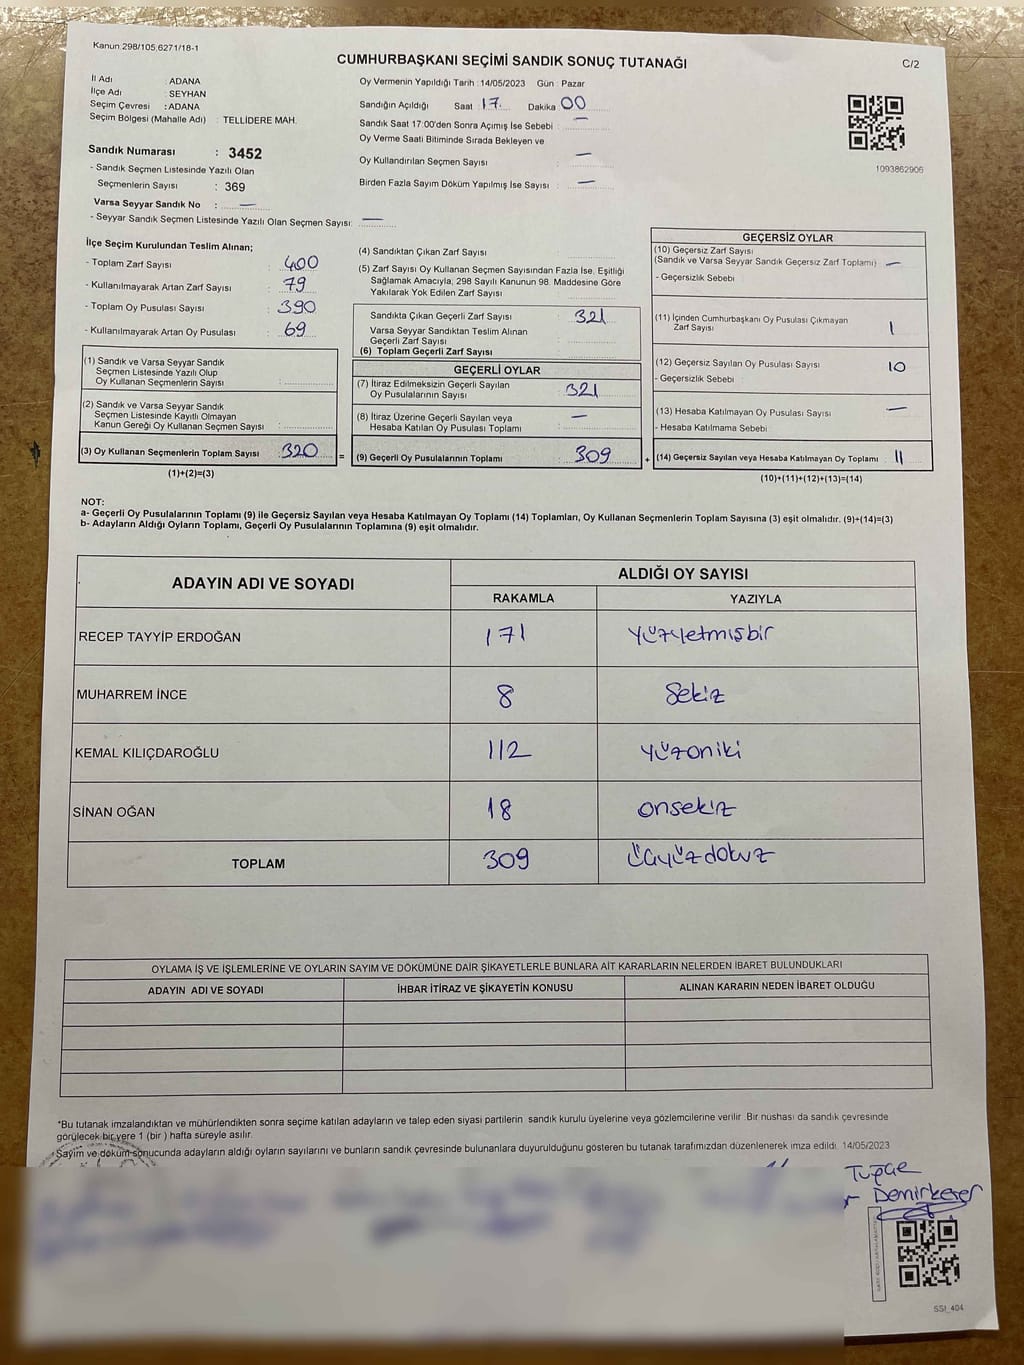 Kanun 298/105,6271/18-1
CUMHURBAŞKANI SEÇİMİ SANDIK SONUÇ TUTANAĞI
C/2
İl Adı : ADANA
İlçe Adı : SEYHAN
Seçim Çevresi : ADANA
Seçim Bölgesi (Mahalle Adı) : TELLİDERE MAH.
Sandık Numarası : 3452
- Sandık Seçmen Listesinde Yazılı Olan
Seçmenlerin Sayısı : 369
Varsa Seyyar Sandık No : —
- Seyyar Sandık Seçmen Listesinde Yazılı Olan Seçmen Sayısı: —
Oy Vermenin Yapıldığı Tarih : 14/05/2023 Gün : Pazar
Sandığın Açıldığı Saat : 17. Dakika : 00
Sandık Saat 17:00'den Sonra Açımış İse Sebebi : —
Oy Verme Saati Bitiminde Sırada Bekleyen ve
Oy Kullandırılan Seçmen Sayısı : —
Birden Fazla Sayım Döküm Yapılmış İse Sayısı : —
1093862906
İlçe Seçim Kurulundan Teslim Alınan;
- Toplam Zarf Sayısı : 400
- Kullanılmayarak Artan Zarf Sayısı : 79
- Toplam Oy Pusulası Sayısı : 390
- Kullanılmayarak Artan Oy Pusulası : 69
(1) Sandık ve Varsa Seyyar Sandık
Seçmen Listesinde Yazılı Olup
Oy Kullanan Seçmenlerin Sayısı :
(2) Sandık ve Varsa Seyyar Sandık
Seçmen Listesinde Kayıtlı Olmayan
Kanun Gereği Oy Kullanan Seçmen Sayısı :
(3) Oy Kullanan Seçmenlerin Toplam Sayısı : 320 =
(1)+(2)=(3)
(4) Sandıktan Çıkan Zarf Sayısı :
(5) Zarf Sayısı Oy Kullanan Seçmen Sayısından Fazla İse, Eşitliği
Sağlamak Amacıyla, 298 Sayılı Kanunun 98. Maddesine Göre
Yakılarak Yok Edilen Zarf Sayısı :
Sandıkta Çıkan Geçerli Zarf Sayısı : 321
Varsa Seyyar Sandıktan Teslim Alınan
Geçerli Zarf Sayısı :
(6) Toplam Geçerli Zarf Sayısı :
GEÇERLİ OYLAR
(7) İtiraz Edilmeksizin Geçerli Sayılan
Oy Pusulalarının Sayısı : 321
(8) İtiraz Üzerine Geçerli Sayılan veya
Hesaba Katılan Oy Pusulası Toplamı : —
(9) Geçerli Oy Pusulalarının Toplamı : 309 +
GEÇERSİZ OYLAR
(10) Geçersiz Zarf Sayısı
(Sandık ve Varsa Seyyar Sandık Geçersiz Zarf Toplamı) : —
- Geçersizlik Sebebi
(11) İçinden Cumhurbaşkanı Oy Pusulası Çıkmayan
Zarf Sayısı : 1
(12) Geçersiz Sayılan Oy Pusulası Sayısı : 10
- Geçersizlik Sebebi
(13) Hesaba Katılmayan Oy Pusulası Sayısı : —
- Hesaba Katılmama Sebebi
(14) Geçersiz Sayılan veya Hesaba Katılmayan Oy Toplamı : 11
(10)+(11)+(12)+(13)=(14)
NOT:
a- Geçerli Oy Pusulalarının Toplamı (9) ile Geçersiz Sayılan veya Hesaba Katılmayan Oy Toplamı (14) Toplamları, Oy Kullanan Seçmenlerin Toplam Sayısına (3) eşit olmalıdır. (9)+(14)=(3)
b- Adayların Aldığı Oyların Toplamı, Geçerli Oy Pusulalarının Toplamına (9) eşit olmalıdır.
ADAYIN ADI VE SOYADI ALDIĞI OY SAYISI
RAKAMLA YAZIYLA
RECEP TAYYİP ERDOĞAN 171 yüzyetmişbir
MUHARREM İNCE 8 sekiz
KEMAL KILIÇDAROĞLU 112 yüzoniki
SİNAN OĞAN 18 onsekiz
TOPLAM 309 üçyüzdokuz
OYLAMA İŞ VE İŞLEMLERİNE VE OYLARIN SAYIM VE DÖKÜMÜNE DAİR ŞİKAYETLERLE BUNLARA AİT KARARLARIN NELERDEN İBARET BULUNDUKLARI
ADAYIN ADI VE SOYADI İHBAR İTİRAZ VE ŞİKAYETİN KONUSU ALINAN KARARIN NEDEN İBARET OLDUĞU
*Bu tutanak imzalandıktan ve mühürlendikten sonra seçime katılan adayların ve talep eden siyasi partilerin sandık kurulu üyelerine veya gözlemcilerine verilir. Bir nüshası da sandık çevresinde
görülecek bir yere 1 (bir ) hafta süreyle asılır.
Sayım ve döküm sonucunda adayların aldığı oyların sayılarını ve bunların sandık çevresinde bulunanlara duyurulduğunu gösteren bu tutanak tarafımızdan düzenlenerek imza edildi. 14/05/2023
Tuğçe
Demirkeser
SSI_404